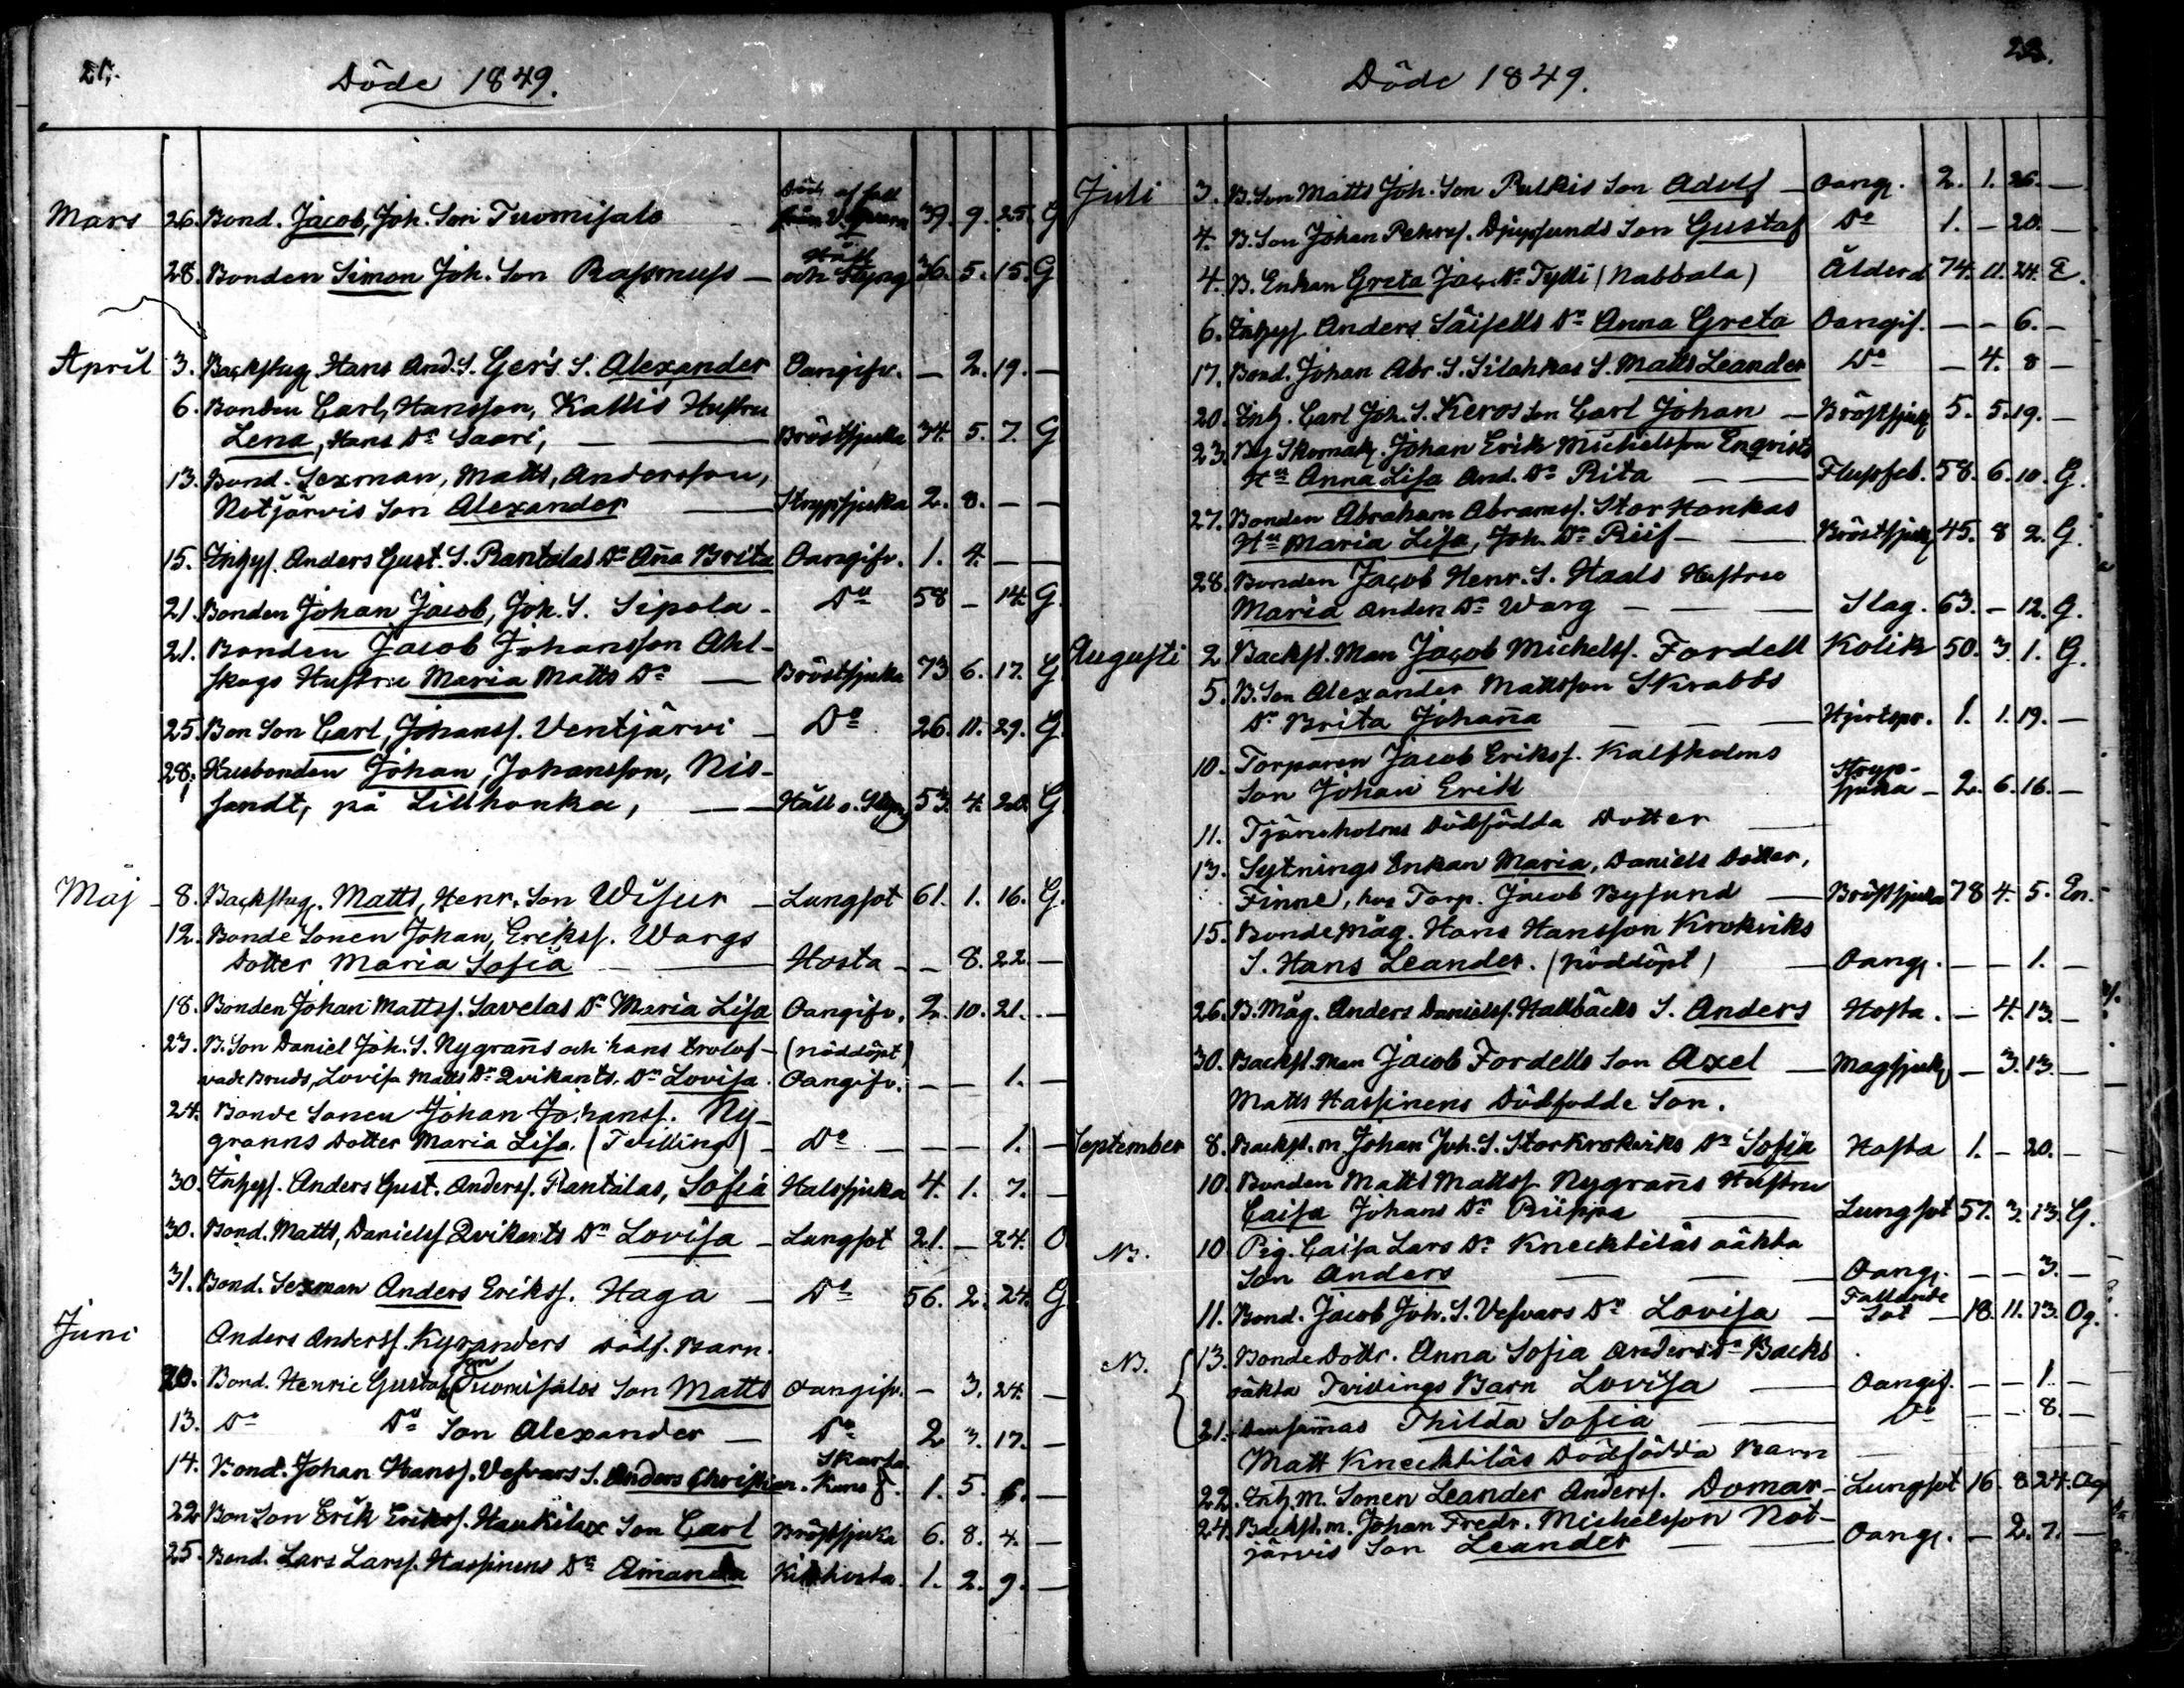 21.
Döde 1849.
Död af fall
Mars 26. Bond. Jacob, Joh. Son Tuomisalo från 39. 9. 25. G
Håll
28. Bonden Simon Joh. Son Rasmus — och Styng 36. 5. 15. G
April 3. Backstug. Hans And. S. Gers S. Alexander Oangifv. — 2. 19. —
6. Bonden Carl, Hansson, Kallis Hustru
Lena, Hans Dr Saari, — Bröstsjuka 34. 5. 7. G
13. Bond. Sexman, Matts, Andersson,
Notjärvis Son Alexander — Strypsjuka 2. 8. — —
15. Inhys. Anders Gust. S. Rantalas Dr Aña Brita Oangifv. 1. 4. — —
21. Bonden Johan Jacob, Joh. S. Sipola - Do 58 — 14. G.
21. Bonden Jacob Johansson Ahl-
skogs Hustru Maria Matts Dr — Bröstsjuka 73 6. 17. G
25. Bon Son Carl, Johanss. Ventjärvi — Do 26. 11. 29. G.
28. Husbonden Johan, Johansson, Nis-
sandt, på Lillhonka, — Håll o. Styng 53. 4. 20. G
Maj 8. Backstug. Matts, Henr. Son Wisur — Lungsot 61. 1. 16. G.
12. Bonde Sonen Johan, Erikss. Wargs
Dotter Maria Sofia — Hosta — — 8. 22. —
18. Bonden Johan Mattss. Savelas Dr Maria Lisa Oangifv. 2. 10. 21. —
23. B. Son Daniel Joh. S. Nygrañs och hans trolof- (nöddöpt)
vade Bruds, Lovisa Matts Dr Qvikants. Dr Lovisa. Oangifv. — — 1. —
24. Bonde Sonen Johan Johanss. Ny-
granns Dotter Maria Lisa. (Tvilling) — Do — — 1. —
30. Inhys. Anders Gust. Anderss. Rantalas, Sofia Halssjuka 4. 1. 7. —
30. Bond. Matts, Danielss. Qvikants Dr Lovisa — Lungsot 21. — 24. O
31. Bond. Sexman Anders Erikss. Haga — Do 56. 2. 24. G
Juni Anders Anderss. Kyranders Dödf. Barn.
Son
20. Bond. Henric Gustaf Tuomisalos Son Matts Oangifv. — 3. 24. —
13. Do Do Son Alexander — Do 2 3. 17. —
14. Bond. Johan Hanss. Vefvars S. Anders Christian. 1. 5. 6. —
22 Bon Son Erik Erikss. Haukilax Son Carl Bröstsjuka 6. 8. 4. —
25. Bond. Lars Larss. Hassinens Dr Amanda Kikhosta. 1. 2. 9. —
22.
Döde 1849.
Juli 3. B. Son Matts Joh. Son Pulkis Son Adolf — Oang. 2. 1. 26. —
4. B. Son Johan Pehrss. Djupsunds Son Gustaf Do 1. — 20. —
4. B. Enkan Greta Jac. Dr Tylli (Nabbala) Ålderd 74. 11. 24. E.
6. Inhys. Anders Säisells Dr Anna Greta Oangif. — — 6. —
17. Bond. Johan Abr. S. Silahkas S. Matts Leander Do — 4. 8 —
20. Inh. Carl Joh. S. Keros Son Carl Johan — Bröstsjuk 5. 5. 19. —
23. By Skomak. Johan Erik Michelsson Enqvists
Hu Anna Lisa And. Dr Rita — Flussfeb. 58. 6. 10. G.
27. Bonden Abraham Abramss. Stor Honkas
Hu Maria Lisa, Joh. Dr Riif — Bröstsjuk 45. 8 2. G.
28. Bonden Jacob Henr. S. Haals Hustru
Maria Anders Dr Warg — Slag. 63. — 12. G.
Augusti 2 Backst. Man Jacob Michelss. Fordell Kolik 50. 3. 1. G.
5. B. Son Alexander Mattsson Skrabbs
Dr Brita Johaña — Hjertspr. 1. 1. 19. —
10. Torparen Jacob Erikss. Kalfholms
Son Johan Erik Stryp-
sjuka — 2. 6. 16. —
11. Tjäruholms Dödfödda Dotter —
13. Sytnings Enkan Maria, Daniels Dotter,
Finne, hos Torp. Jacob Bysund — Bröstsjuka 78 4. 5. En.
15. Bonde Måg. Hans Hansson Krokviks
S. Hans Leander. (nöddöpt) — Oang. — — 1. —
26. B. Måg. Anders Danielss. Hallbäcks S. Anders Hosta. — 4. 13. —
30. Backst. Man Jacob Fordells Son Axel — Magsjuk — 3. 13. —
Matts Hassinens Dödfödde Son.
September 8. Backst. m. Johan Joh. S. Storkrokviks Dr Sofia Hosta 1. — 20. —
10. Bonden Matts Mattss. Nygrañs Hustru
Caisa Johans Dr Riippa — Lungsot 57. 3. 13. G.
N. 10 Pig. Caisa Lars Dr Knecktiläs oäkta
Son Anders — Oang. — — 3. —
Fallande
11. Bond. Jacob Joh. S. Vefvars Dr Lovisa — Sot — 18. 11. 13. Og.
N. 13. Bonde Dottr. Anna Sofia Anders Dr Backs
oäkta Tvillings Barn Lovisa — Oangif. — — 1. —
21. Densammas Thilda Sofia — Do — — 8. —
Matt Knecktiläs Dödfödda Barn —
22. Inh. m. Sonen Leander Anderss. Domar — Lungsot 16. 8 24. Og
24. Backst. m. Johan Fredr. Michelsson Not-
järvis Son Leander — Oang. — 2. 7. —